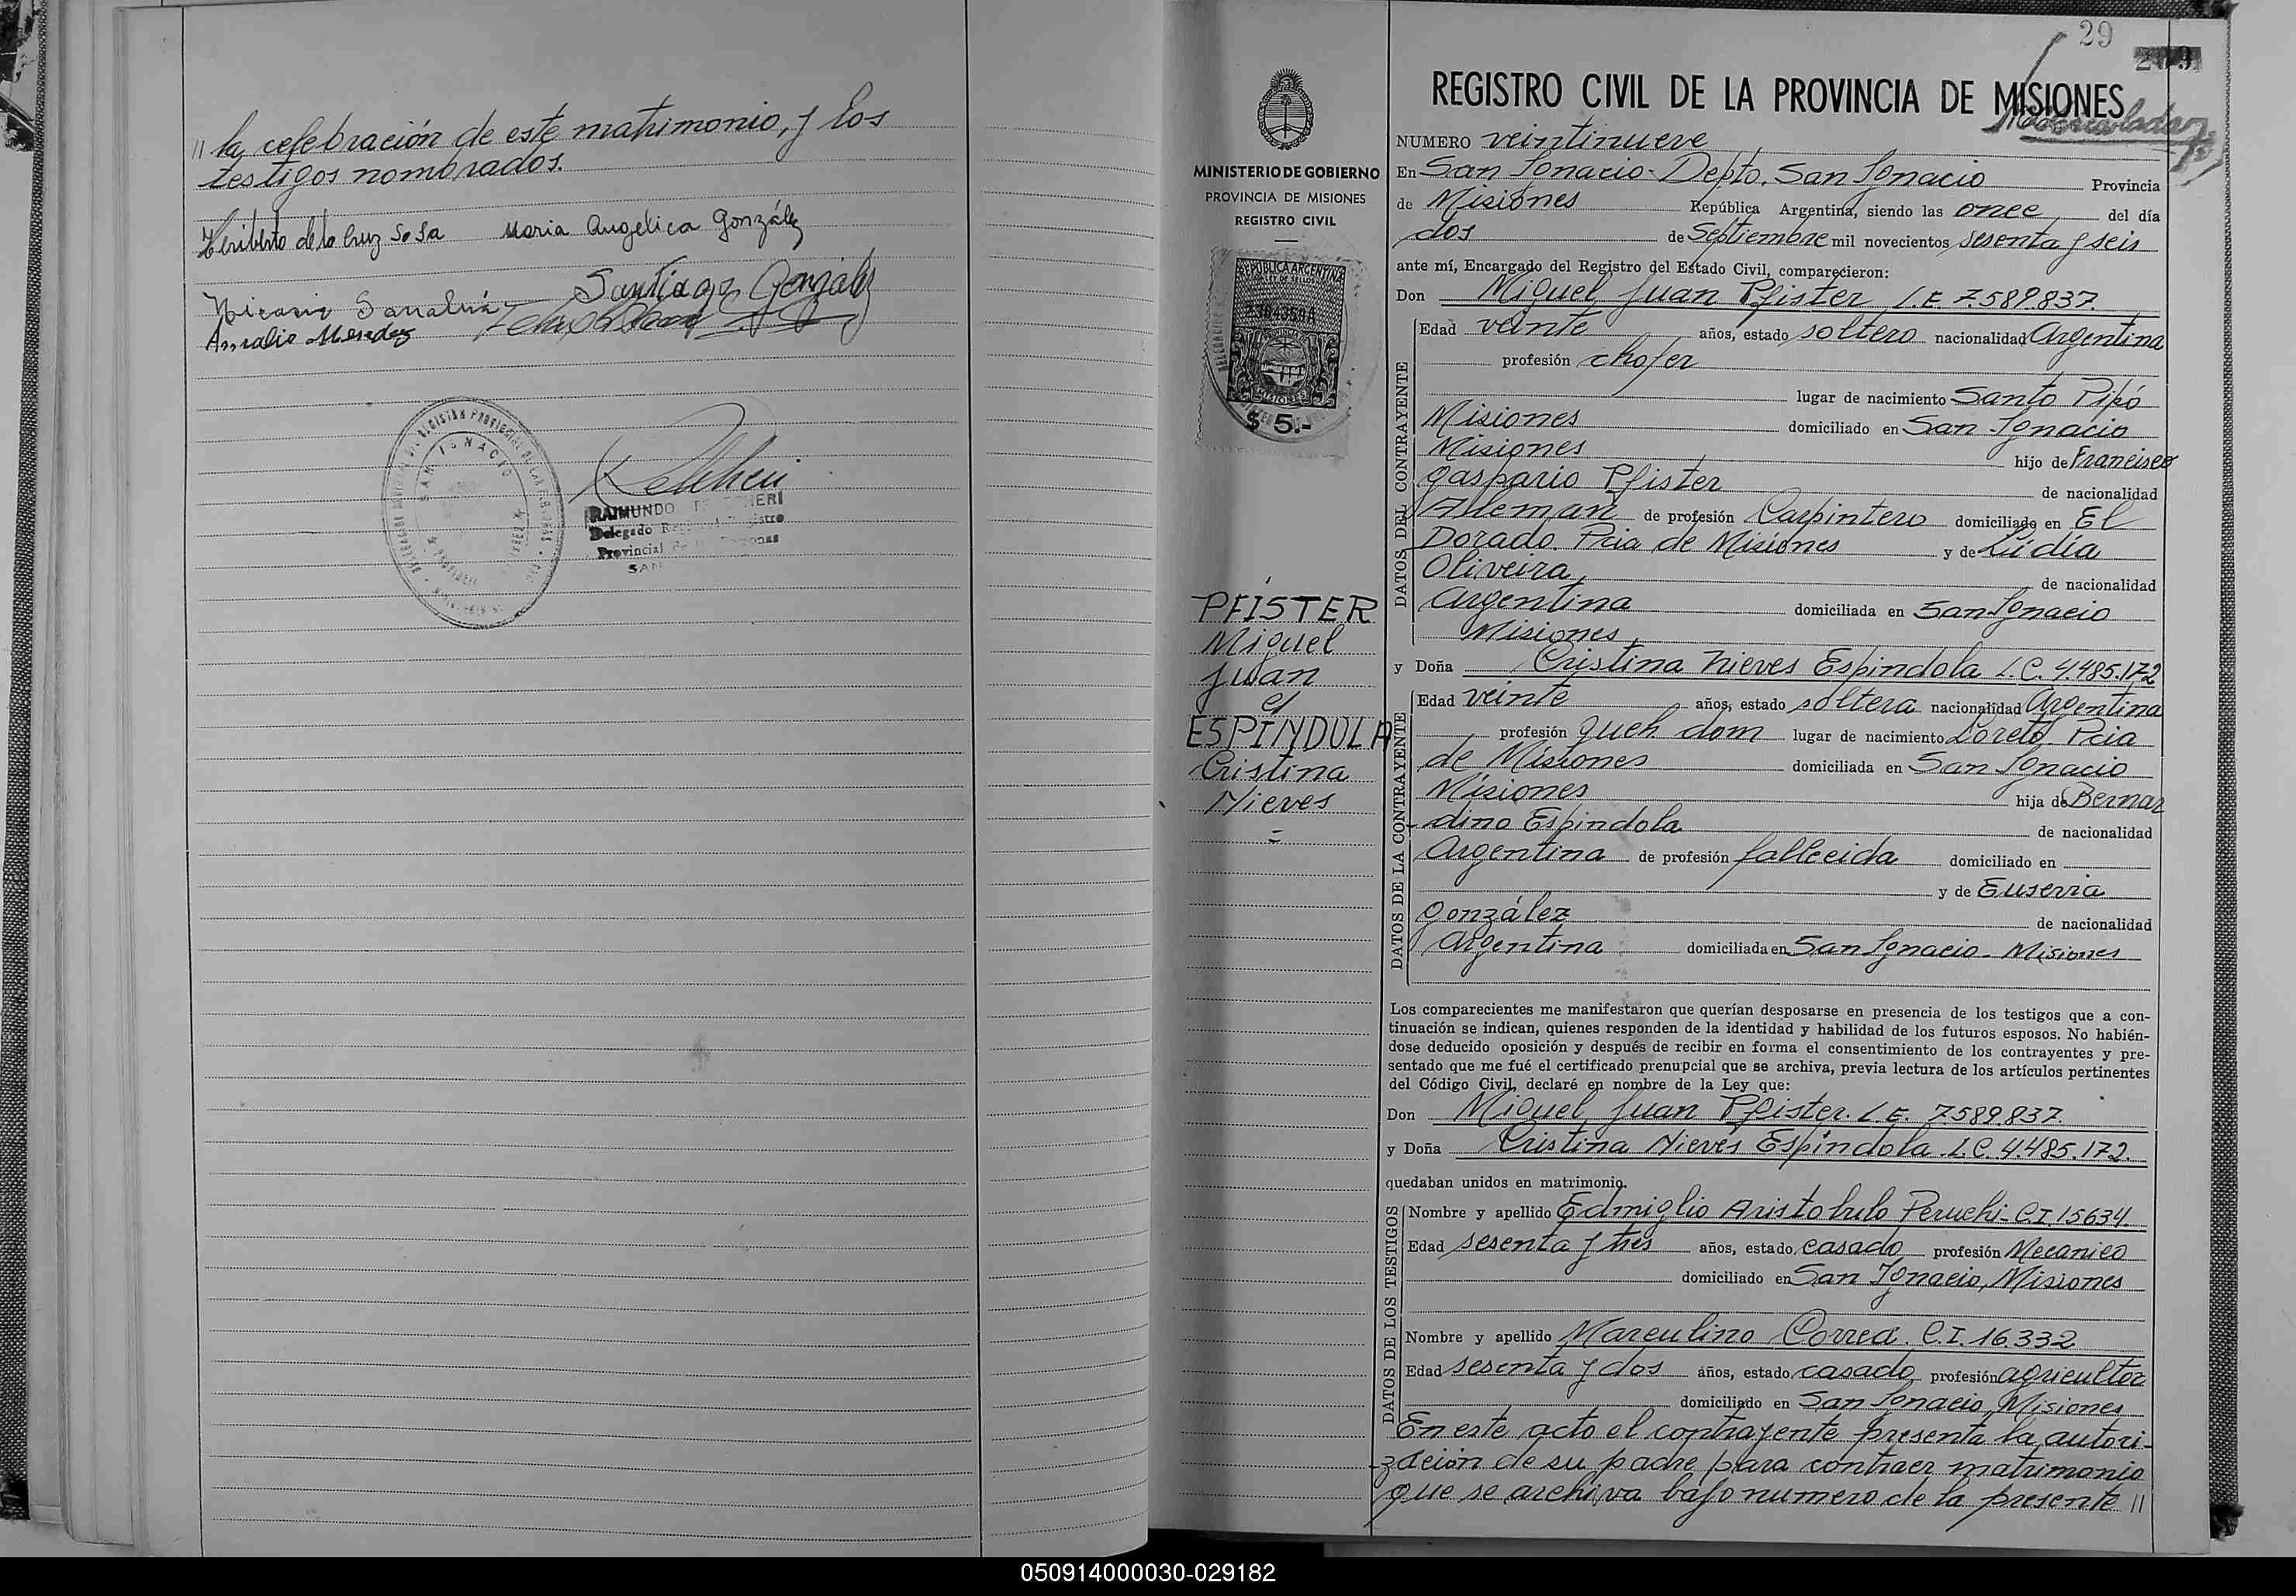 // la celebración de este matrimonio, y los
testigos nombrados.
Heriberto de la Cruz Sosa Maria Angélica González
Santiago González
SAN IGNACIO
RAIMUNDO
Delegado
Provincial
SAN
29
REGISTRO CIVIL DE LA PROVINCIA DE MISIONES
MINISTERIO DE GOBIERNO
PROVINCIA DE MISIONES
REGISTRO CIVIL
REPUBLICA ARGENTINA
LEY DE SELLOS
MISIONES
$ 5.-
PFISTER
Miguel
Juan
c/
ESPINDULA
Cristina
Nieves
=
NUMERO veintinueve
En San Ignacio - Depto. San Ignacio Provincia
de Misiones República Argentina, siendo las once del día
dos de Septiembre mil novecientos sesenta y seis
ante mí, Encargado del Registro del Estado Civil, comparecieron:
Don Miguel Juan Pfister L.E. 7.589.837.
DATOS DEL CONTRAYENTE
Edad veinte años, estado soltero nacionalidad Argentina
profesión chofer
lugar de nacimiento Santo Pipó
Misiones domiciliado en San Ignacio
Misiones hijo de Francisco
Gaspario Pfister de nacionalidad
Alemán de profesión Carpintero domiciliado en El
Dorado. Pcia de Misiones y de Lidia
Oliveira, de nacionalidad
Argentina domiciliada en San Ignacio
Misiones,
y Doña Cristina Nieves Espindola L.C. 4.485.172
DATOS DE LA CONTRAYENTE
Edad veinte años, estado soltera nacionalidad Argentina
profesión queh dom lugar de nacimiento Loreto. Pcia
de Misiones domiciliada en San Ignacio
Misiones hija de Bernar
-dino Espindola de nacionalidad
Argentina de profesión fallecida domiciliado en
y de Eusevia
González de nacionalidad
Argentina domiciliada en San Ignacio - Misiones
Los comparecientes me manifestaron que querían desposarse en presencia de los testigos que a con-
tinuación se indican, quienes responden de la identidad y habilidad de los futuros esposos. No habién-
dose deducido oposición y después de recibir en forma el consentimiento de los contrayentes y pre-
sentado que me fué el certificado prenupcial que se archiva, previa lectura de los artículos pertinentes
del Código Civil, declaré en nombre de la Ley que:
Don Miguel Juan Pfister. L.E. 7.589.837.
y Doña Cristina Nieves Espindola. L.C. 4.485.172.
quedaban unidos en matrimonio.
DATOS DE LOS TESTIGOS
Nombre y apellido Edmiglio Aristobulo Peruchi - C.I. 15634.
Edad sesenta y tres años, estado, casado profesión Mecanico
domiciliado en San Ignacio, Misiones
Nombre y apellido Marculino Correa. C.I. 16.332
Edad sesenta y dos años, estado casado profesión agricultor
domiciliado en San Ignacio, Misiones
En este acto el contrayente presenta la autori-
-zación de su padre para contraer matrimonio
que se archiva bajo numero de la presente //
050914000030-029182